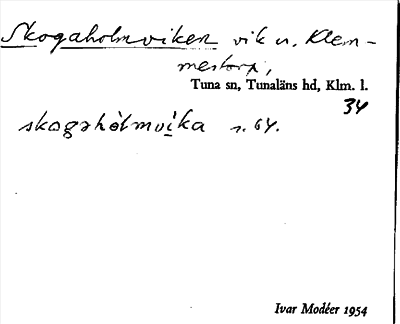 Skogaholmviken vik u. Klem-
mestorp,
Tuna sn, Tunaläns hd, Klm. l.
34
skogahòlmvika s. 64.
Ivar Modéer 1954